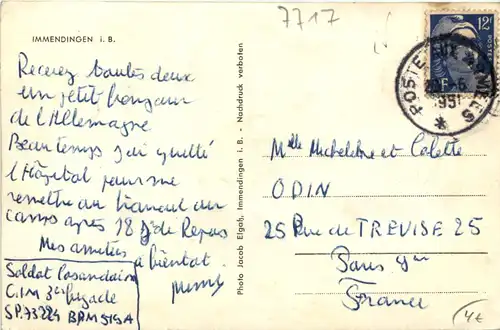 7717
IMMENDINGEN i. B.
Recevez toutes deux
un petit bonjour
de l'Allemagne
Beau temps j'ai quitté
l'Hôpital pour me
remettre au travail du
camp après 18 J. de Repos
Mes amitiés
à bientôt
Soldat
C.I.M 3e brigade
SP. 73224 BPM 519A
Photo Jacob Elgaß, Immendingen i. B. - Nachdruck verboten
12F
POSTE AUX ARMEES
1951
Melle Micheline et Colette
ODIN
25 Rue de TREVISE 25
Paris 9me
France
4€